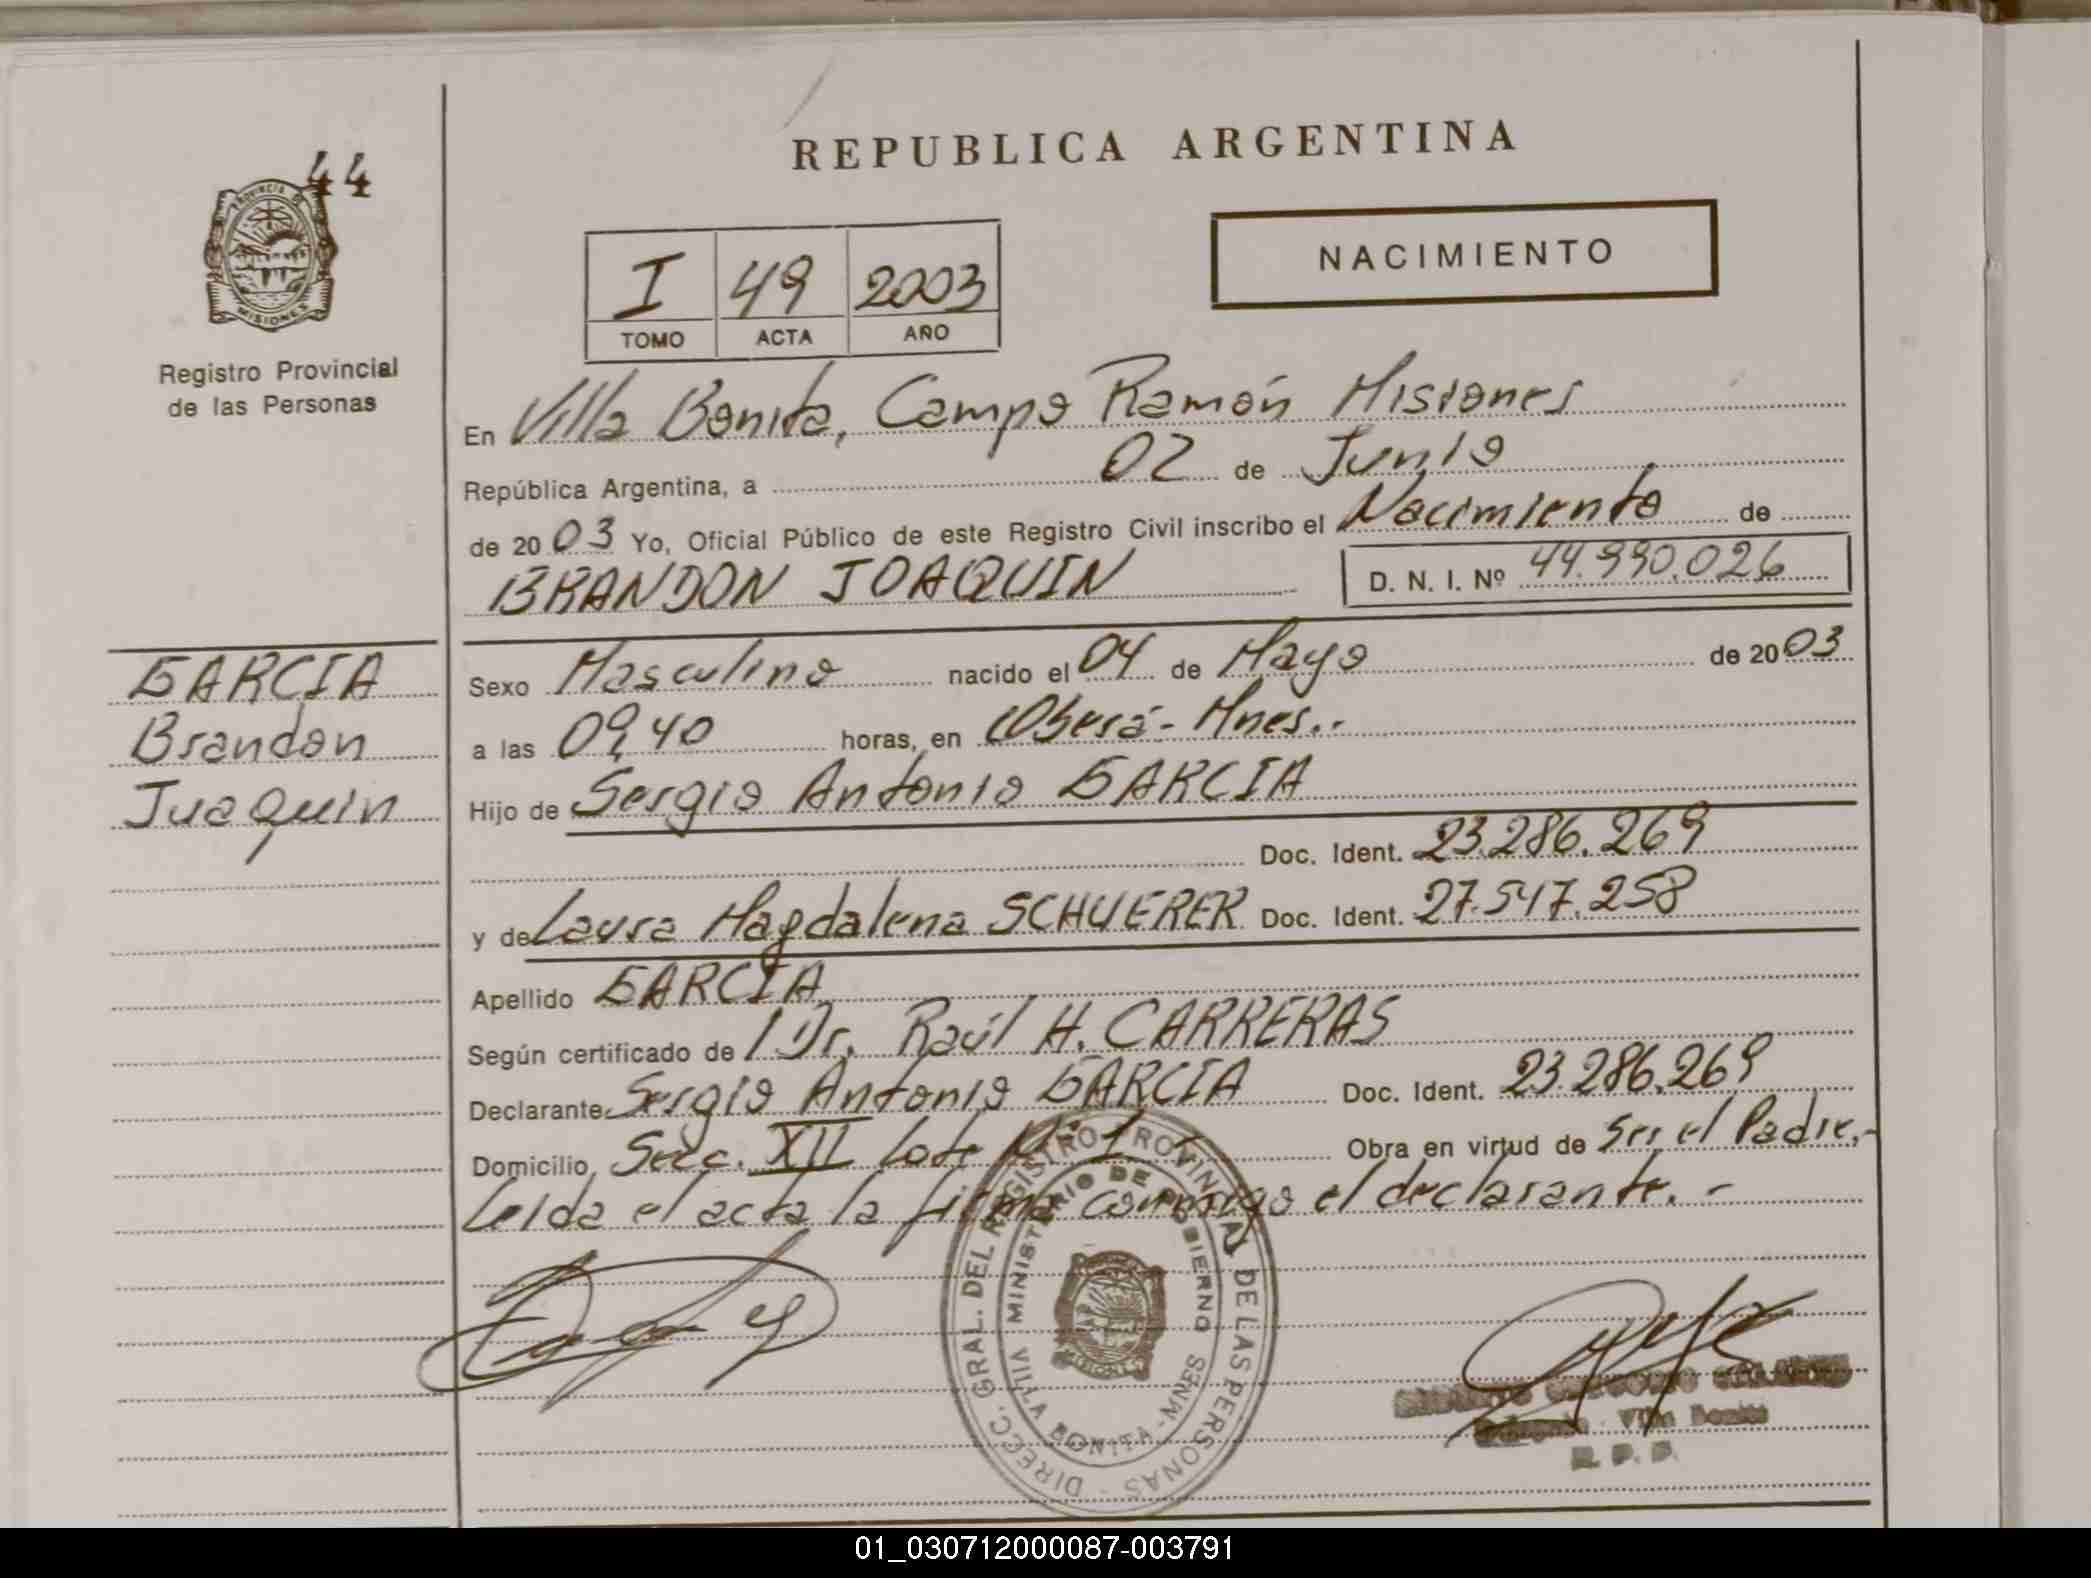 44
PROVINCIA DE
MISIONES
Registro Provincial
de las Personas
GARCIA
Brandon
Juaquin
REPUBLICA ARGENTINA
I 49 2003
TOMO ACTA AÑO
NACIMIENTO
En Villa Bonita, Campo Ramón Misiones
República Argentina, a 02 de Junio
de 2003 Yo, Oficial Público de este Registro Civil inscribo el Nacimiento de
BRANDON JOAQUIN D. N. I. Nº 44.990.026
Sexo Masculino nacido el 04 de Mayo de 2003
a las 09,40 horas, en Oberá - Mnes.-
Hijo de Sergio Antonio GARCIA
Doc. Ident. 23.286.269
y de Laura Magdalena SCHUERER Doc. Ident. 27.547.258
Apellido GARCIA
Según certificado de Dr. Raúl H. CARRERAS
Declarante Sergio Antonio GARCIA Doc. Ident. 23.286.269
Domicilio Secc. XII Lote Nº 1 Obra en virtud de ser el Padre.-
Leida el acta la firma conmigo el declarante.-
DIRECC. GRAL. DEL REGISTRO PROVINCIAL DE LAS PERSONAS -
MINISTERIO DE GOBIERNO
VILLA BONITA - MNES
MISIONES
Villa Bonita
R. P. P.
01_030712000087-003791